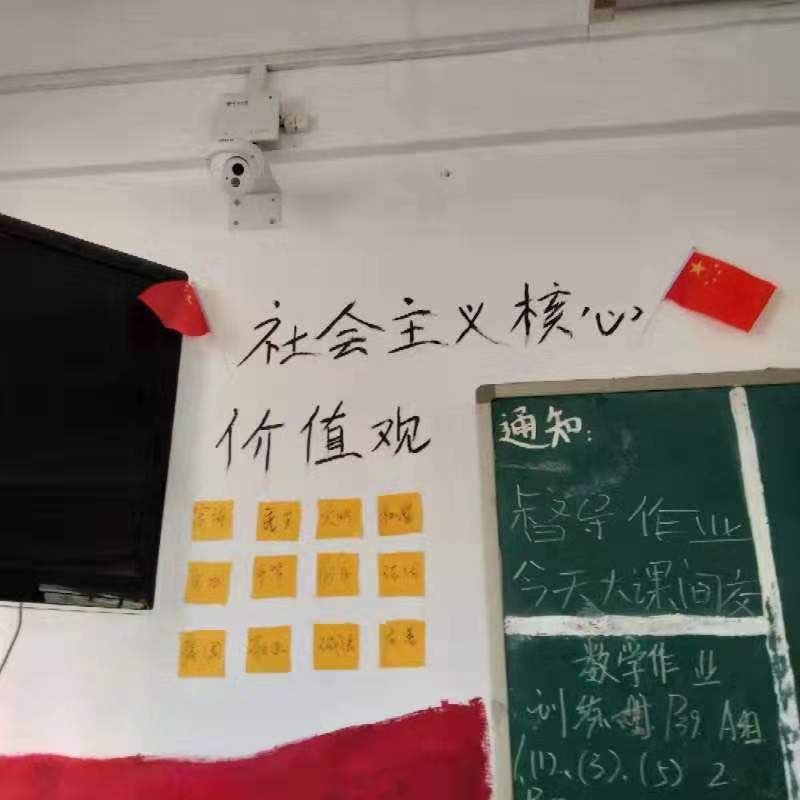 社会主义核心
价值观
富强 民主 文明 和谐
自由 平等 公正 法治
爱国 敬业 诚信 友善
通知:
督导作业
今天大课间交
数学作业
训练 P39 A组
(1)、(3)、(5) 2